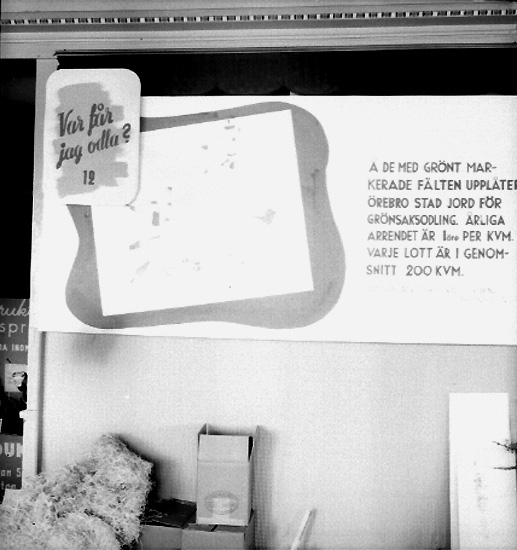 Var får
jag odla?
12
Å DE MED GRÖNT MAR-
KERADE FÄLTEN UPPLÅTER
ÖREBRO STAD JORD FÖR
GRÖNSAKSODLING. ÅRLIGA
ARRENDET ÄR 1 öre PER KVM.
VARJE LOTT ÄR I GENOM-
SNITT 200 KVM.